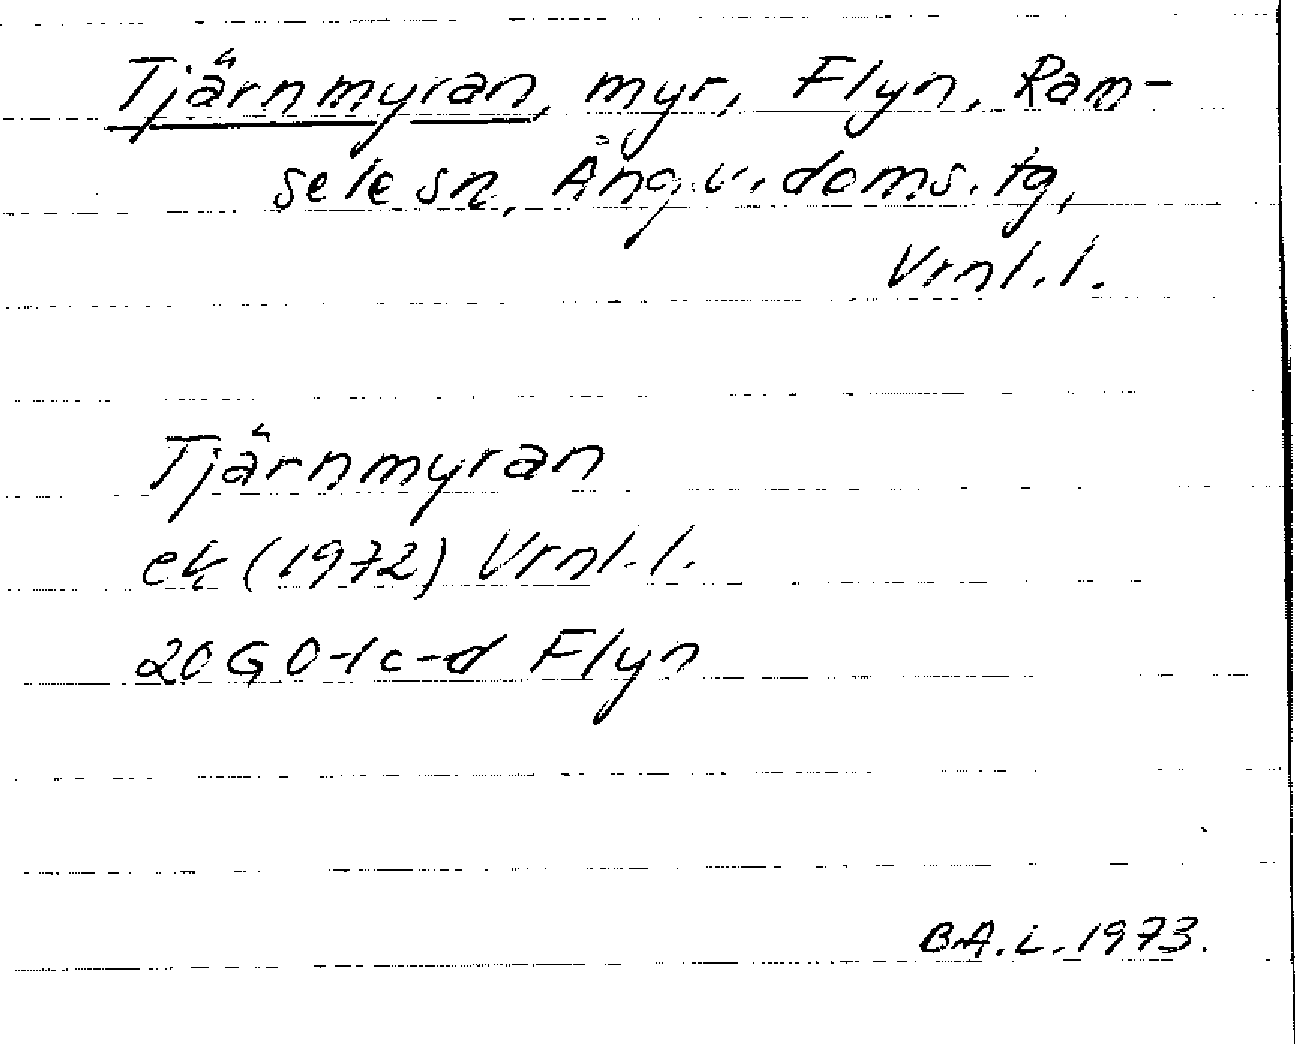 Tjärnmyran, myr, Flyn, Ram-
sele sn, Ång.v. doms. tg,
Vrnl. l.
Tjärnmyran
ek (1972) Vrnl. l.
20G 0-1c-d Flyn
B.A.L. 1973.